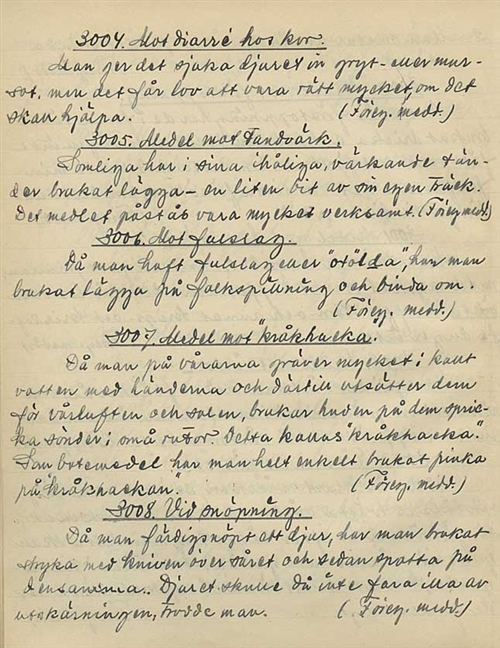 3004. Mot diarré hos kor.
Man ger det sjuka djuret in gryt- eller mur-
sot, men det får lov att vara rätt mycket, om det
skall hjälpa. (Föreg. medd.)
3005. Medel mot Tandvärk.
Somliga har i sina ihåliga, värkande tän-
der brukat lägga en liten bit av sin egen träck.
Det medlet påstås vara mycket verksamt. (Föreg. medd.)
3006. Mot fulslag.
Då man haft fulslag eller "otölda", har man
brukat lägga på folkspillning och binda om.
(Föreg. medd.)
3007. Medel mot "kråkhacka".
Då man på vårarna gräver mycket i kallt
vatten med händerna och därtill utsätter dem
för vårluften och solen, brukar huden på dem spric-
ka sönder i små rutor. Detta kallas "kråkhacka".
Som botemedel har man helt enkelt brukat pinka
på "kråkhackan". (Föreg. medd.)
3008. Vid snöpning.
Då man färdigsnöpt ett djur, har man brukat
stryka med kniven över såret och sedan spotta på
densamma. Djuret skulle då inte fara illa av
utskärningen, trodde man. (Föreg. medd.)